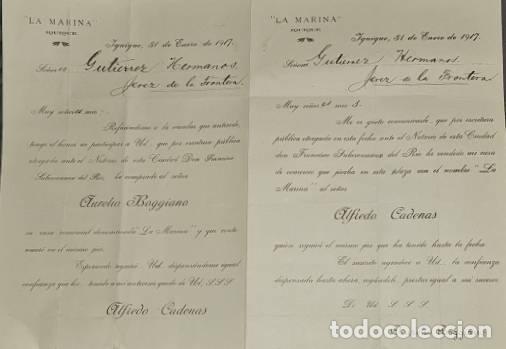 "LA MARINA"
IQUIQUE
Iquique, 31 de Enero de 1917.
Señores Gutiérrez Hermanos
Jerez de la Frontera
Muy señores mio:
Refiriéndome a la vuelta que antecede,
tengo el honor de participar a Ud. que por escritura pública
otorgada ante el Notario de esta Ciudad Don Francisco
Subercaseaux del Río, he comprado al señor
Aurelio Boggiano
su casa comercial denominada "La Marina" y que continuará en el mismo
Esperando seguirá Ud. dispensándome igual
confianza que ha tenido a mi antecesor quedo de Ud. S.S.S.
Alfredo Cadenas
"LA MARINA"
IQUIQUE
Iquique, 31 de Enero de 1917.
Señores Gutiérrez Hermanos
Jerez de la Frontera
Muy señores mio S.
Me es grato comunicarle, que por escritura
pública otorgada en esta fecha ante el Notario de esta Ciudad
don Francisco Subercaseaux del Río he vendido mi casa
de comercio que giraba en esta plaza con el nombre "La
Marina" al señor
Alfredo Cadenas
quién seguirá el mismo giro que ha tenido hasta la fecha.
El suscrito agradece a Ud. la confianza
dispensada hasta ahora, rogándole prestar igual a mi sucesor
De Ud. S. S. S.
todocoleccion.net